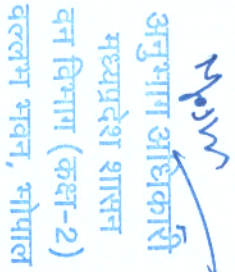 अनुभाग अधिकारी
मध्यप्रदेश शासन
वन विभाग (कक्ष-2)
वल्लभ भवन, भोपाल